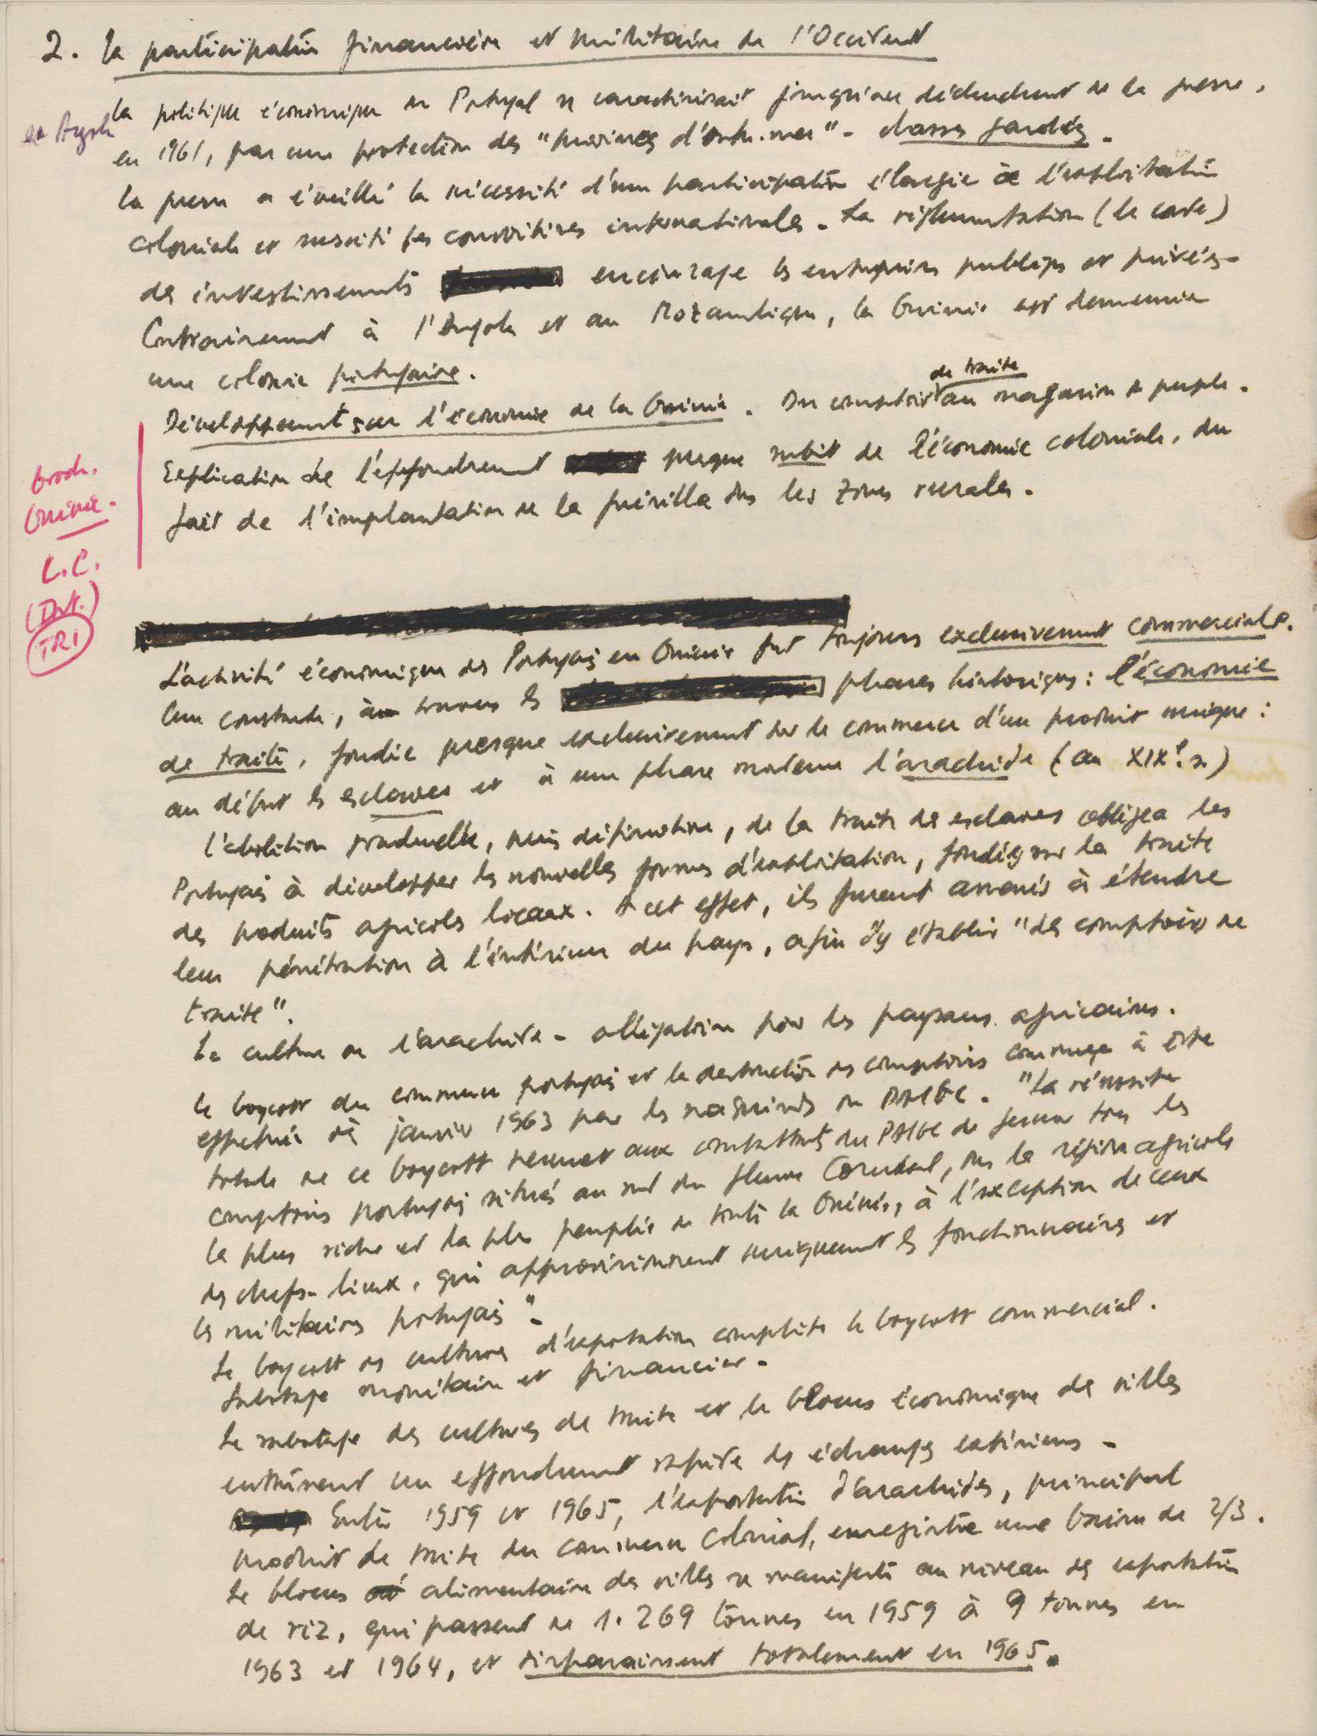 2. La participation financière et militaire de l'Occident
La politique économique du Portugal se caractérisait jusqu'au déclenchement de la guerre,
en Angola
en 1961, par une protection des "provinces d'outre-mer" - classes gardées.
La guerre a éveillé la nécessité d'une participation élargie à l'exploitation
coloniale et suscité les convoitises internationales. La réglementation (le code)
des investissements encourage les entreprises publiques et privées.
Contrairement à l'Angola et au Mozambique, la Guinée est demeurée
une colonie portugaise.
de traite
Développement sur l'économie de la Guinée. Du comptoir au magasin du peuple.
Explication de l'effondrement presque subit de l'économie coloniale, du
fait de l'implantation de la guérilla ds les zones rurales.
Broch.
Guinée.
L.C.
(Dact.)
TRI
L'activité économique des Portugais en Guinée fut toujours exclusivement commerciale.
Une constante, à travers les phases historiques: l'économie
de traite, fondée presque exclusivement sur le commerce d'un produit unique:
au début les esclaves et à une phase moderne l'arachide (au XIXe. s)
l'abolition graduelle, puis définitive, de la traite des esclaves obligea les
Portugais à développer les nouvelles formes d'exploitation, fondées sur la traite
des produits agricoles locaux. A cet effet, ils furent amenés à étendre
leur pénétration à l'intérieur du pays, afin d'y établir "des comptoirs de
traite".
La culture de l'arachide - obligatoire pour les paysans africains.
Le boycott du commerce portugais et la destruction des comptoirs commença à être
effectuée dès janvier 1963 par les maquisards du PAIGC. "La réussite
totale de ce boycott permet aux combattants du PAIGC de fermer tous les
comptoirs portugais situés au sud du fleuve Corubal, ds la région agricole
la plus riche et la plus peuplée de toute la Guinée, à l'exception de ceux
des chefs-lieux, qui approvisionnent uniquement les fonctionnaires et
les militaires portugais".
Le boycott des cultures d'exportation complète le boycott commercial.
Sabotage monétaire et financier.
Le sabotage des cultures de traite et le blocus économique des villes
entraînent un effondrement rapide des échanges extérieurs.
Entre 1959 et 1965, l'exportation d'arachides, principal
produit de traite du commerce colonial, enregistre une baisse de 2/3.
Le blocus alimentaire des villes se manifeste au niveau des exportations
de riz, qui passent de 1.269 tonnes en 1959 à 9 tonnes en
1963 et 1964, et disparaissent totalement en 1965.